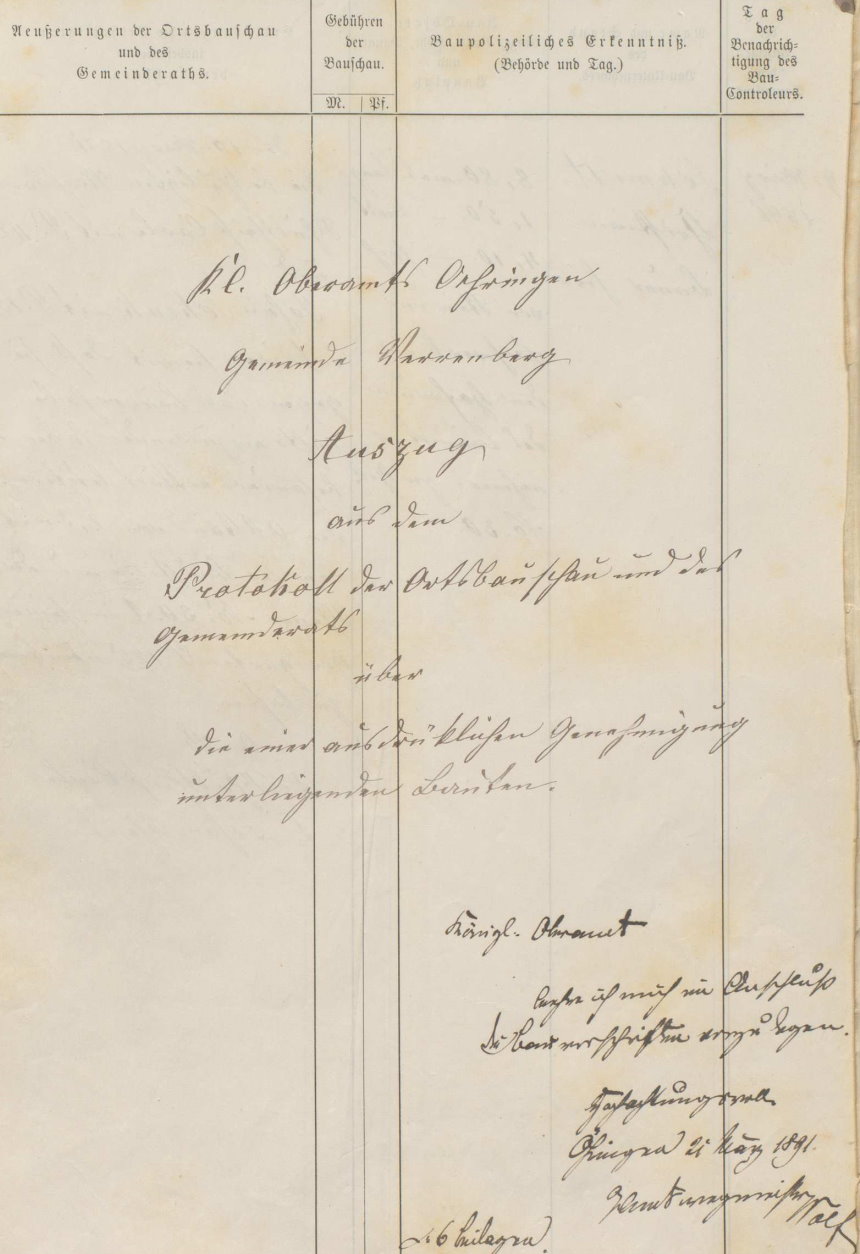 Aeußerungen der Ortsbauschau
und des
Gemeinderaths.
Gebühren
der
Bauschau.
M. Pf.
Baupolizeiliches Erkenntniß.
(Behörde und Tag.)
Tag
der
Benachrich-
tigung des
Bau-
Controleurs.
Kl. Oberamts Oehringen
Gemeinde Verrenberg
Auszug
aus dem
Protokoll der Ortsbauschau und des
Gemeinderats
über
die einer ausdrüklichen Genehmigung
unterliegenden Bauten.
Königl. Oberamt
beehre ich mich im Anschluß
die Bauvorschriften vorzulegen.
Hochachtungsvoll
Öhringen 21 März 1891.
Oberamtswegmeister
6 Beilagen.